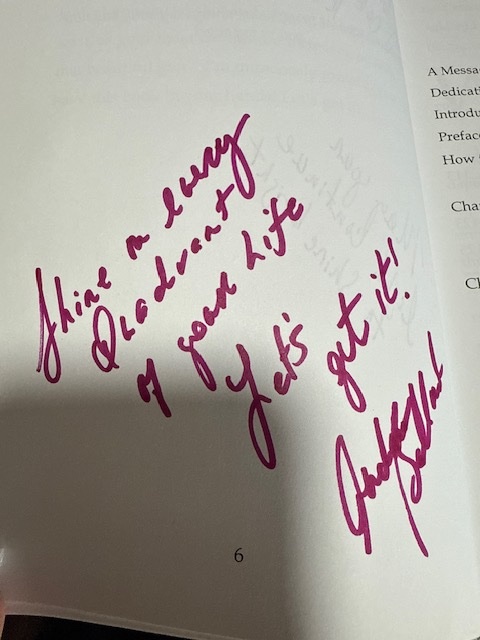 Shine in every
Quadrant
of your Life
Let's get it!
6
A Messa
Dedicati
Introdu
Prefac
How
Cha
Ch